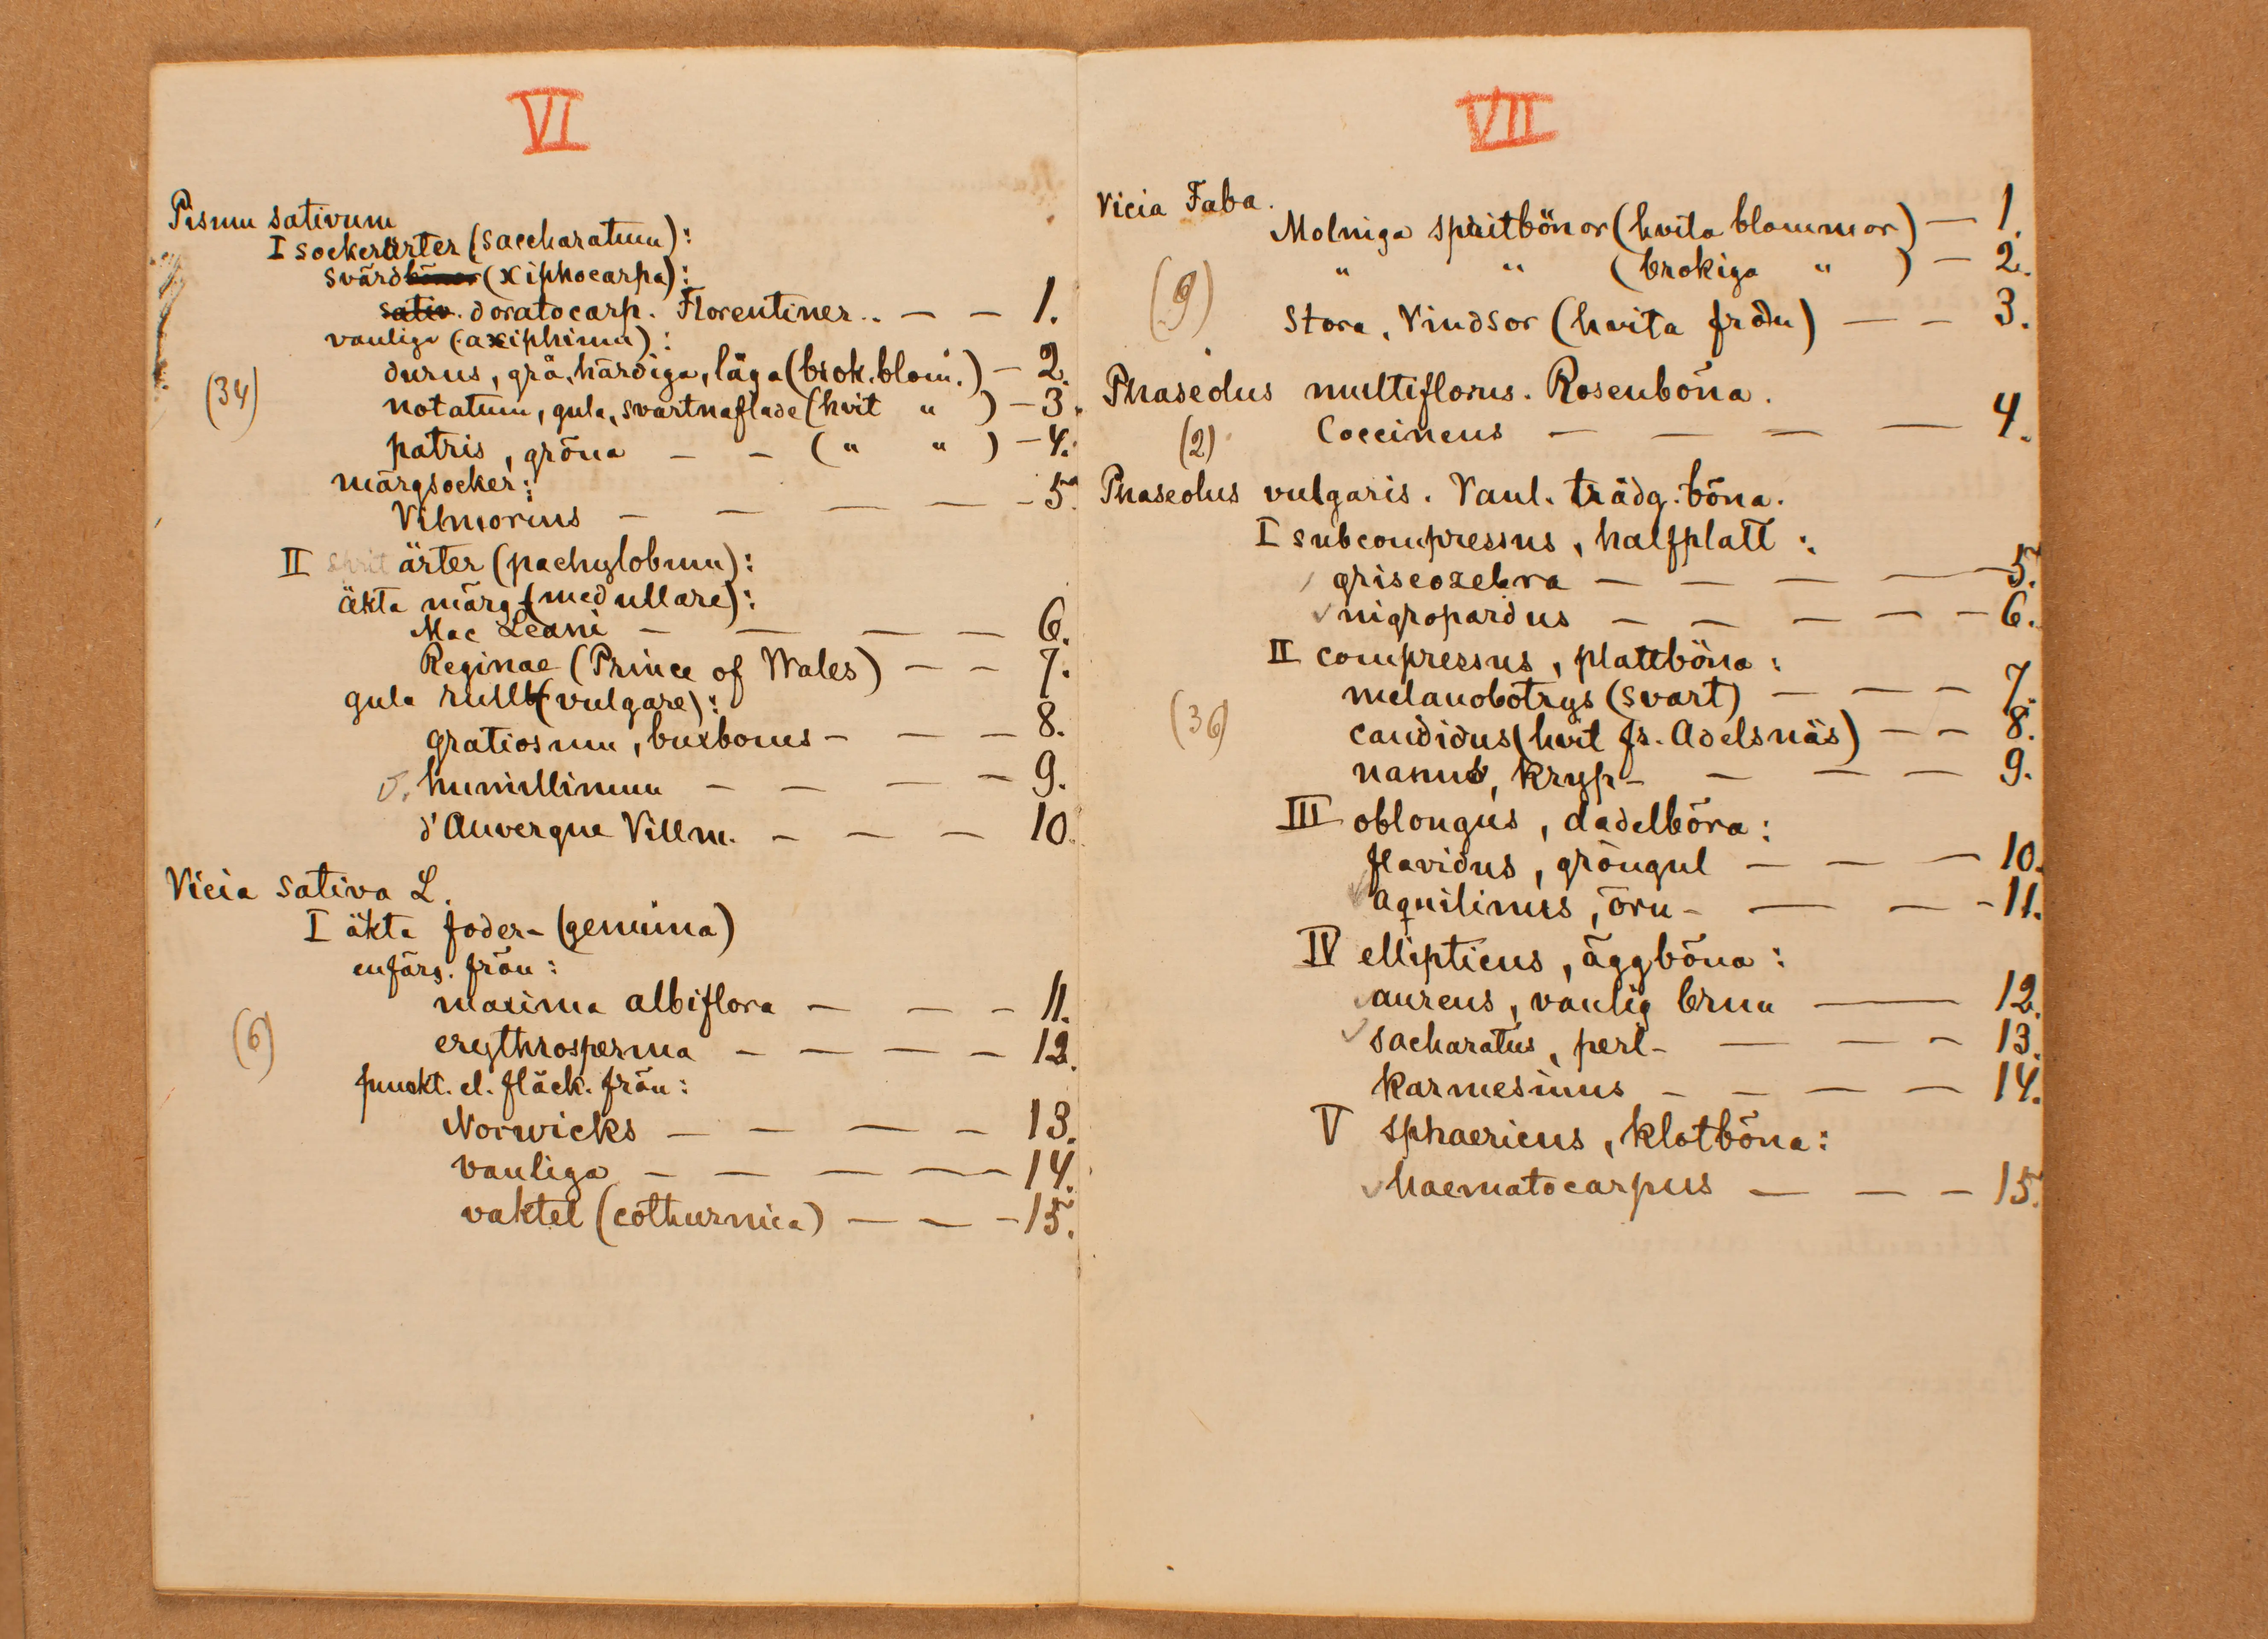 VI
Pisum sativum
I sockerärter (saccharatum):
svärd (xiphocarpa):
sativ. doratocarp. Florentiner.. — — 1.
vanliga (axiphium):
durus, grå, härdiga, låga (brok. blom.) — 2.
(34)
notatum, gula, svartnaflade (hvit " ) — 3.
patris, gröna — — ( " " ) — 4.
märgsocker:
Vilmorins — — — — — 5.
II sprit ärter (pachylobum):
äkta märg- (medullare):
Mac Leani — — — — 6.
Reginae (Prince of Wales) — — 7.
gula rull (vulgare):
gratiosum, buxboms — — — 8.
humillimum — — — — 9.
d'Auvergne Villm. — — — 10.
Vicia sativa L.
I äkta foder- (genuina)
enfärg. frön:
maxima albiflora — — — 11.
(6)
erythrosperma — — — — 12.
punkt. el. fläck. frön:
Norwicks — — — — 13.
vanliga — — — — — 14.
vaktel (cothurnica) — — — 15.
VII
Vicia Faba.
Molniga spritbönor (hvita blommor) — 1.
" " (brokiga " ) — 2.
(9)
Stora, Vindsor (hvita frön) — — 3.
Phaseolus multiflorus. Rosenböna.
(2)
Coccineus — — — — 4.
Phaseolus vulgaris. Vanl. trädg. böna.
I subcompressus, halfplatt:
griseozebra — — — — — 5.
✓ nigropardus — — — — — 6.
II compressus, plattböna:
melanobotrys (svart) — — — 7.
(36)
candidus (hvit fr. Adelsnäs) — — 8.
nanus, kryp- — — — 9.
III oblongus, dadelböna:
flavidus, gröngul — — — 10.
✓ aquilinus, örn- — — — 11.
IV ellipticus, äggböna:
✓ aureus, vanlig brun — 12.
✓ sacharatus, perl- — — — 13.
karmesinus — — — — 14.
V sphaericus, klotböna:
✓ haematocarpus — — — 15.